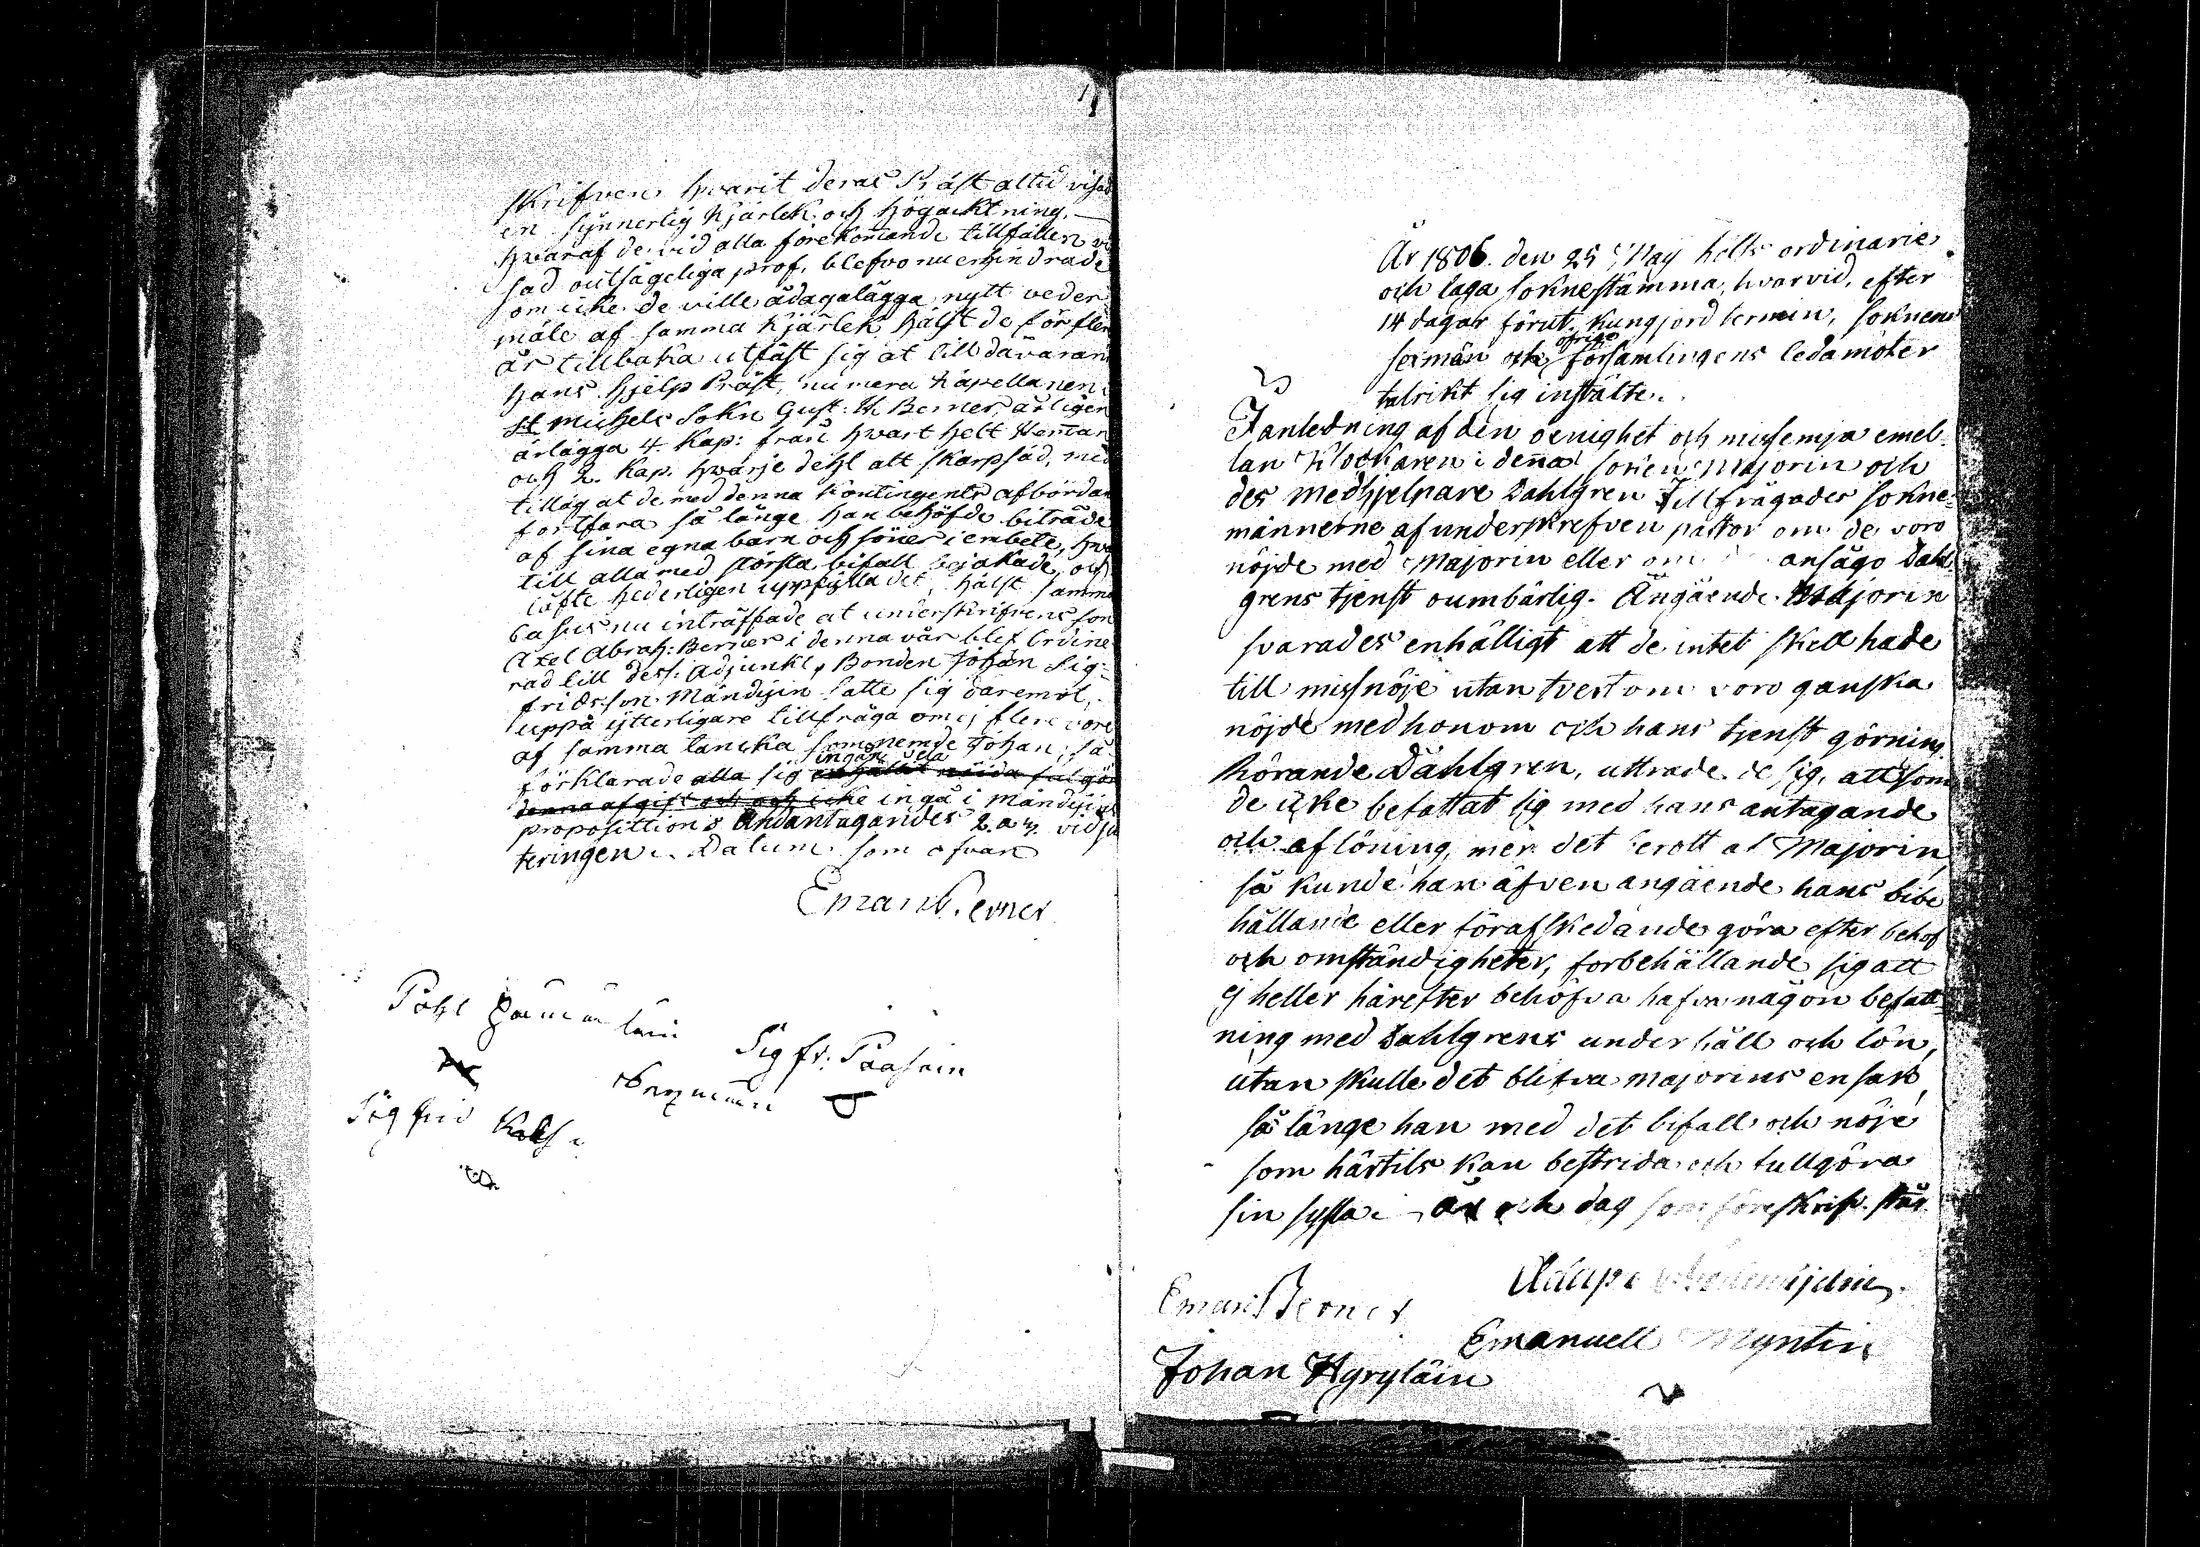 skrifven hwarit deras Präst altid visad
en synnerlig kjärlek och högacktning.
hwaraf de vid alla förekommande tillfällen vi
sad outsägeliga prof, blefvo nu erhindrade
som icke de ville ådagalägga nytt veder
mäle af samma kjärlek hälst de för flere
år tillbaka utfäst sig at till dåvaran
hans hjelp Präst, nu mera Kapellanen i
St Michels Sokn Gust: W. Berner, årligen
ärlägga 4. Kap: från hwart helt Heman
och 2. Kap. hwarje dehl alt skarpsäd, med
tillåg at de med denna Kontingents afbördan
fortfara så länge han behöfde biträde
af sina egna barn och söner i embete, hwar
till alla med största bifall bejakade, och
löfte hederligen uppfylla det, hälst samma
casus nu inträffade at underskrifvens son
Axel Abrah: Berner i denna vår blef Ordine
rad till dess Adjunkt, Bonden Johan Sig-
fridsson Mändijin satte sig däremot,
uppå ytterligare tillfråga om ej flere vore
af samma tancka som nemde Johan, så
ingen dela
förklarade alla sig enhälligt nöjda fulgöra
denna afgift och och icke ingå i Mändijins
proposittion Undantagandes 2. a 3. vid ju
teringen. Datum som ofvan
Eman Berner
Påhl
Sigfr: Paasoin
Sigfrid
År 1806. den 25 May hölts ordinarie
och laga soknestämma, hvarvid, efter
14 dagar förut kungjord termin, soknens
öfrige
sexmän och församlingens ledamöter
talrikt sig instälte.
I anledning af den oenighet och missemja emel-
lan Klockaren i denna soken Majorin och
des medhjelpare Dahlgren Tillfrågades sokne-
männerne af underskrefven pastor om de voro
nöjde med Majorin eller om ansågo Dahl-
grens tjenst oumbärlig. Angående Majorin
svarades enhälligt att de intet skell hade
till missnöje utan tvertom voro ganska
nöjde med honom och hans tjenst görning
hörande Dahlgren, uttrade de sig, att som
de icke befattat sig med hans antagande
och aflöning, men det berott af Majorin,
så kunde han äfven angående hans bibe
hållande eller förafskedande göra efter behof
och omständigheter, förbehållande sig att
ej heller härefter behöfva hafva någon befatt-
ning med Dahlgrens underhåll och lön,
utan skulle det blifva Majorins ensak
så länge han med det bifall och nöje
som härtils kan bestrida och fullgöra
sin sysla. År och dag som föreskrifv. står
Eman Berner
Emanuell Myntin
Johan Hyryläin